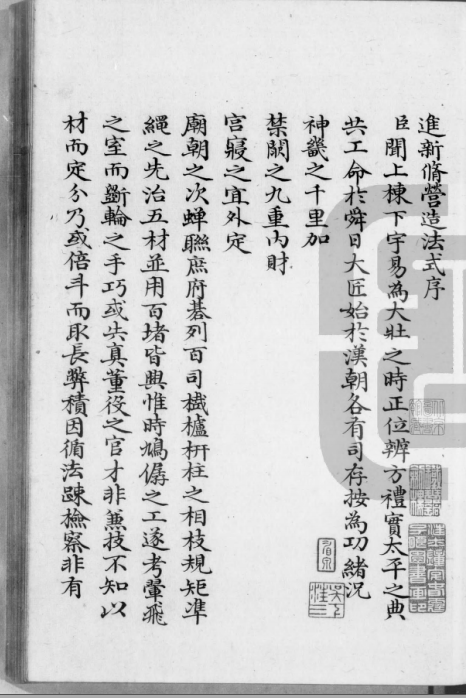 進新脩營造法式序
臣聞上棟下宇易為大壯之時正位辨方禮實太平之典
共工命於舜日大匠始於漢朝各有司存按為功緒況
神畿之千里加
禁闕之九重內財
宮寢之宜外定
廟朝之次蟬聯庶府碁列百司櫼櫨枅柱之相枝規矩準
繩之先治五材並用百堵皆興惟時鳩僝之工遂考翬飛
之室而斵輪之手巧或失真董役之官才非兼技不知以
材而定分乃或倍斗而取長弊積因循法踈檢察非有